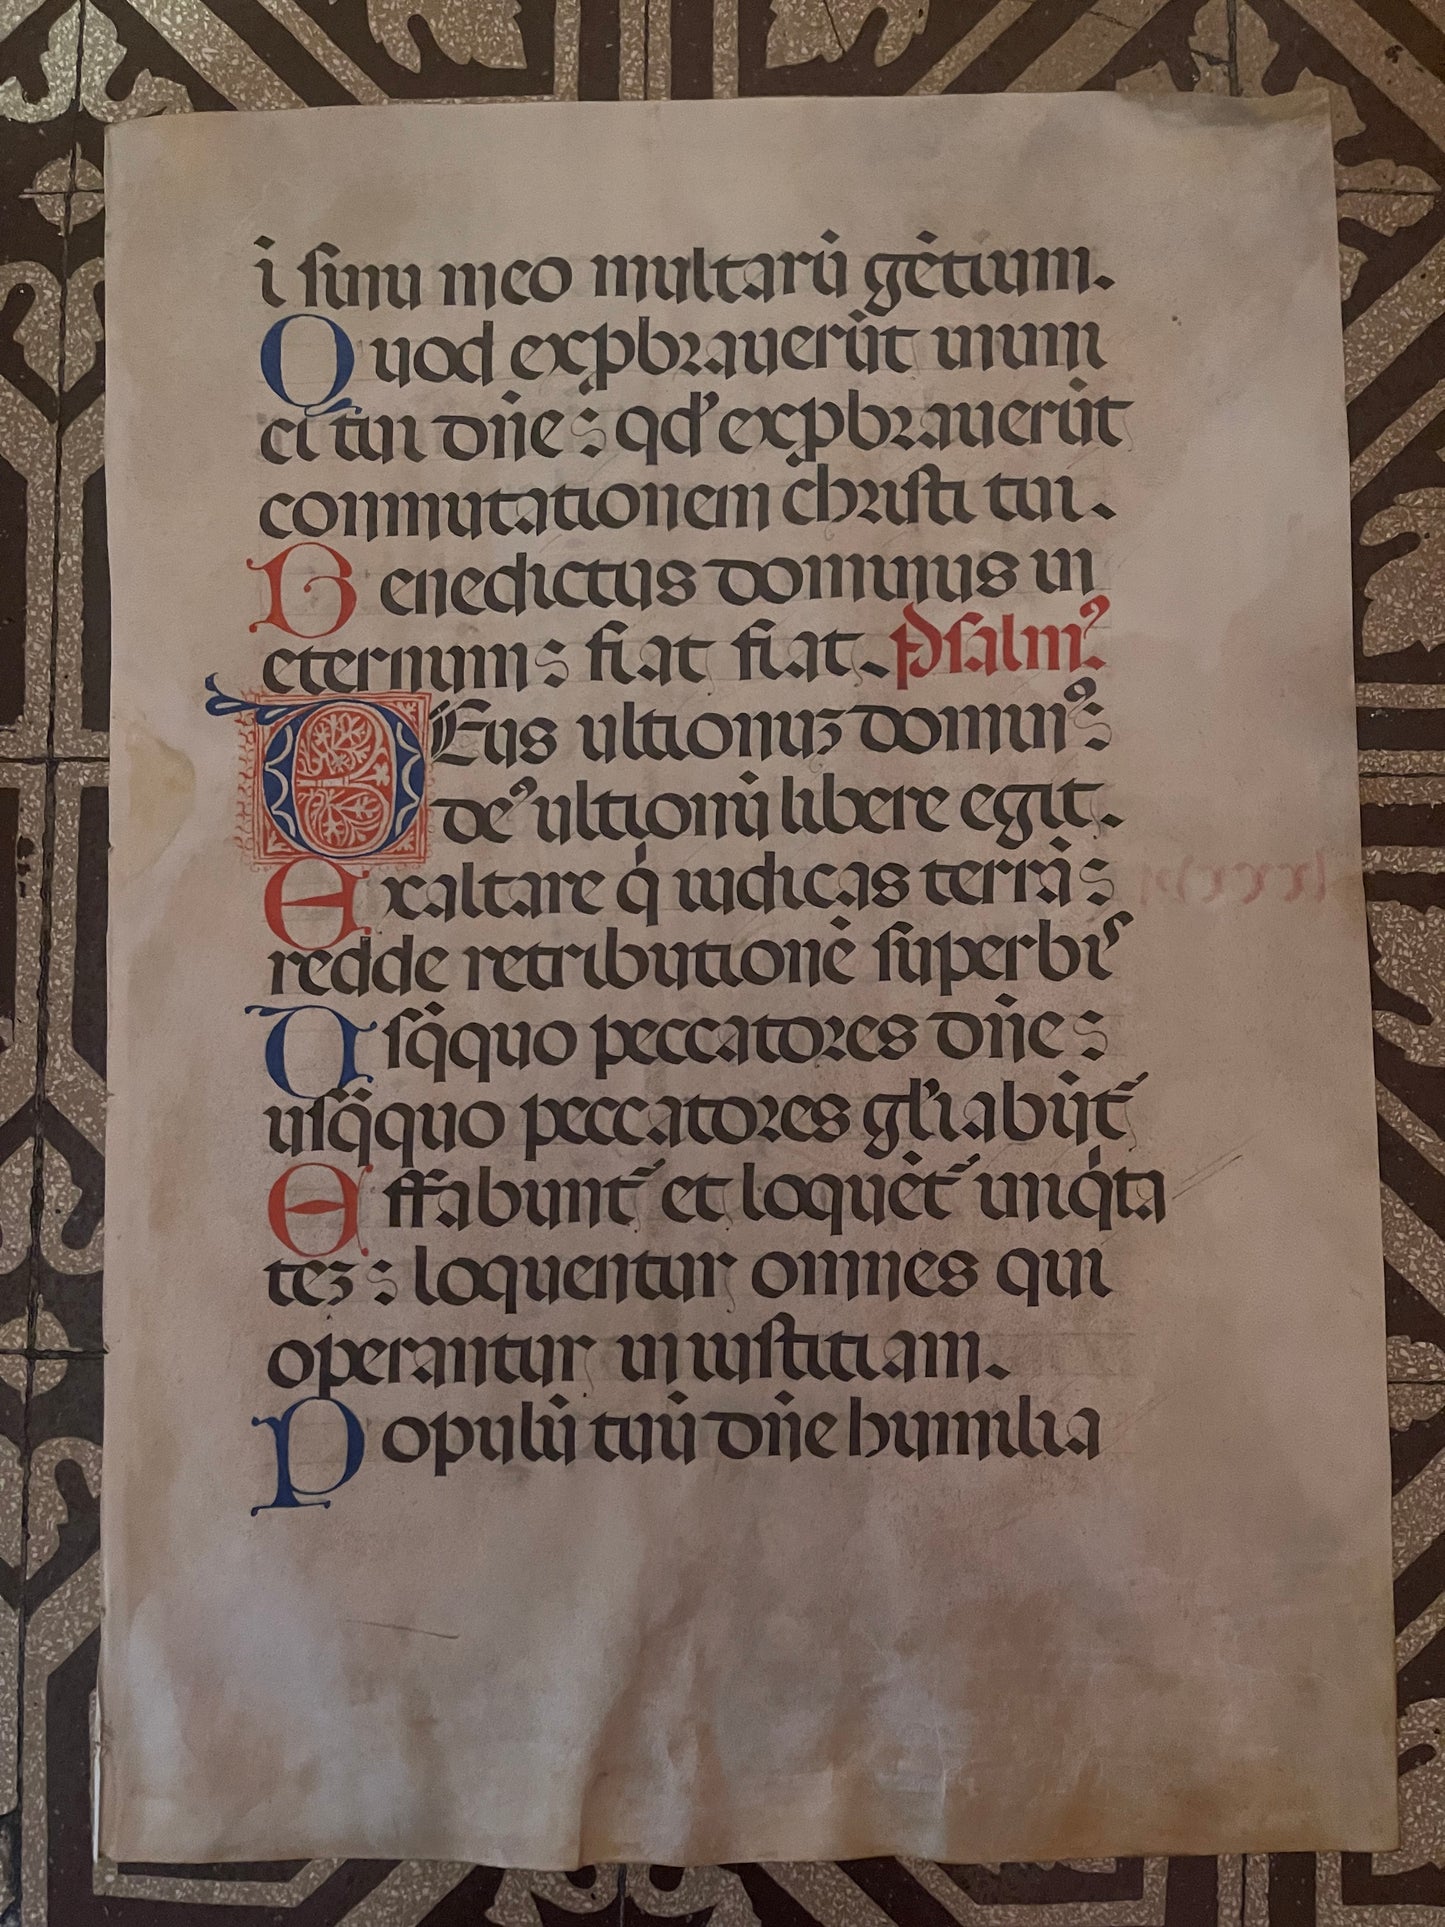 i sinu meo multarū gētium.
Quod exꝓbrauerūt inimi
ci tui dn̄e : qd’ exꝓbrauerūt
conmutationem christi tui.
Benedictus dominus in
eternum : fiat fiat. Psalmꝰ
DEus ultionuꝫ dominꝰ :
deꝰ ultionū libere egit.
Exaltare q̇ iudicas terrā :
redde retributionē superbiˢ
Vsq̄quo peccatores dn̄e :
usq̄quo peccatores gl’iabūt᷑
Effabunt᷑ et loquēt᷑ iniq̇ta
teꝫ : loquentur omnes qui
operantur iniustitiam.
Populū tuū dn̄e humilia